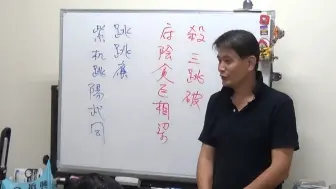 紫机跳陽武同
跳跳廉
府陰貪巨相梁
殺三跳破